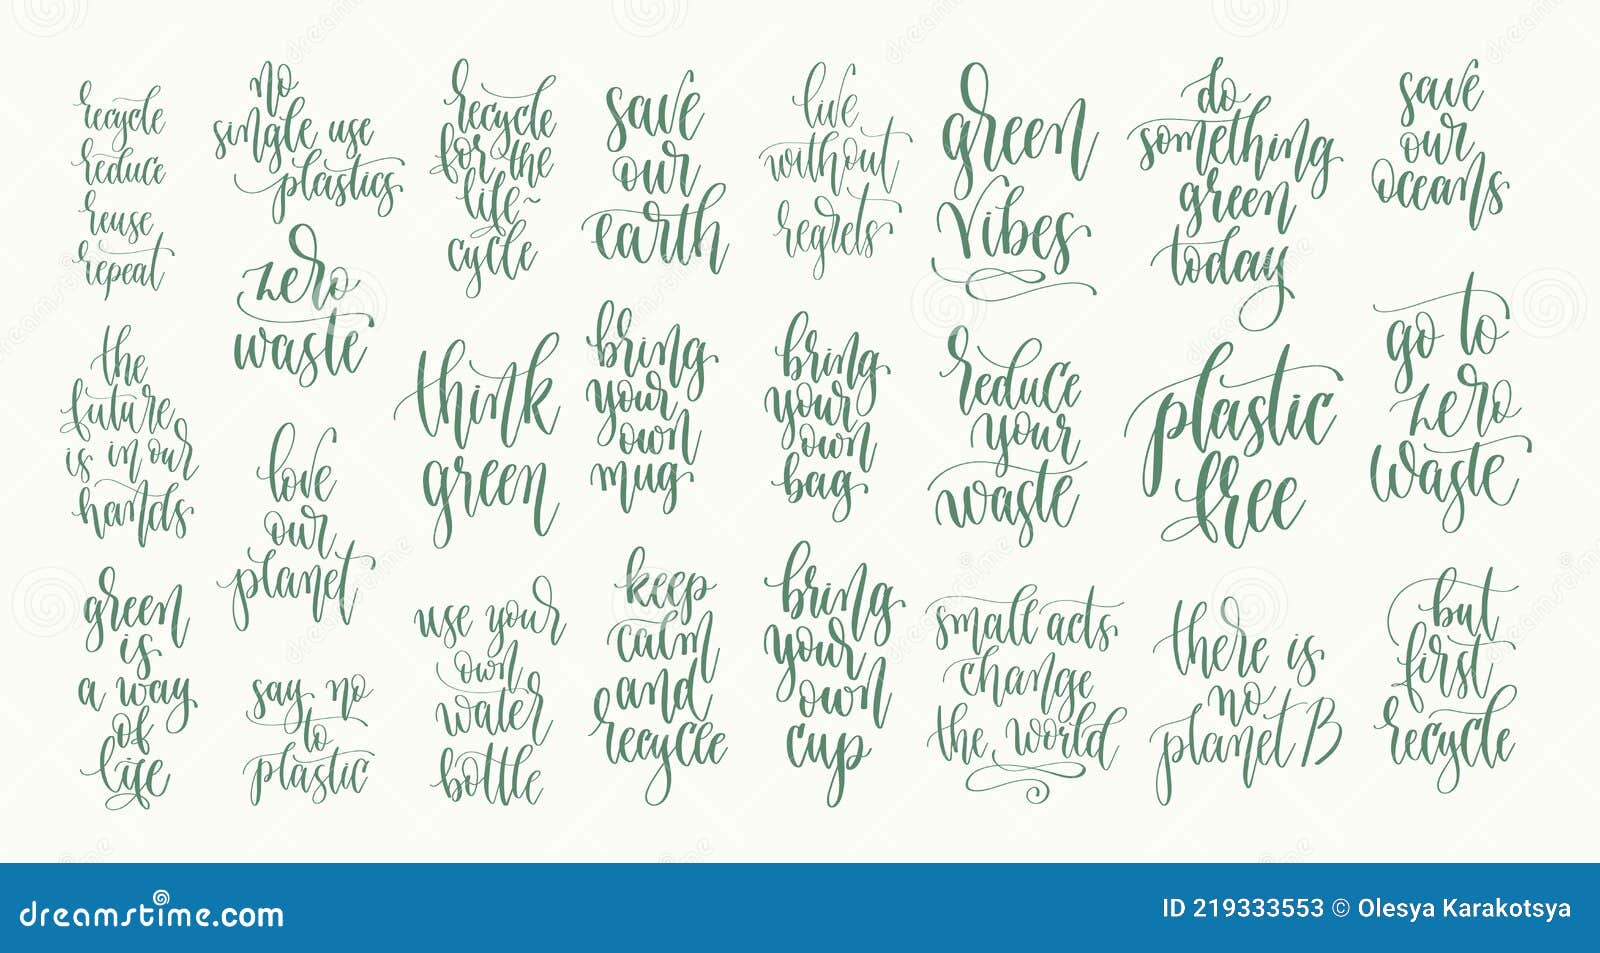 recycle
reduce
reuse
repeat
the
future
is in our
hands
green
is
a way
of
life
no
single use
plastics
zero
waste
love
our
planet
say no
to
plastic
recycle
for the
life~
cycle
think
green
use your
own
water
bottle
save
our
earth
bring
your
own
mug
keep
calm
and
recycle
live
without
regrets
bring
your
own
bag
bring
your
own
cup
green
vibes
reduce
your
waste
small acts
change
the world
do
something
green
today
plastic
free
there is
no
planet B
save
our
oceans
go to
zero
waste
but
first
recycle
dreamstime.com
ID 219333553 © Olesya Karakotsya